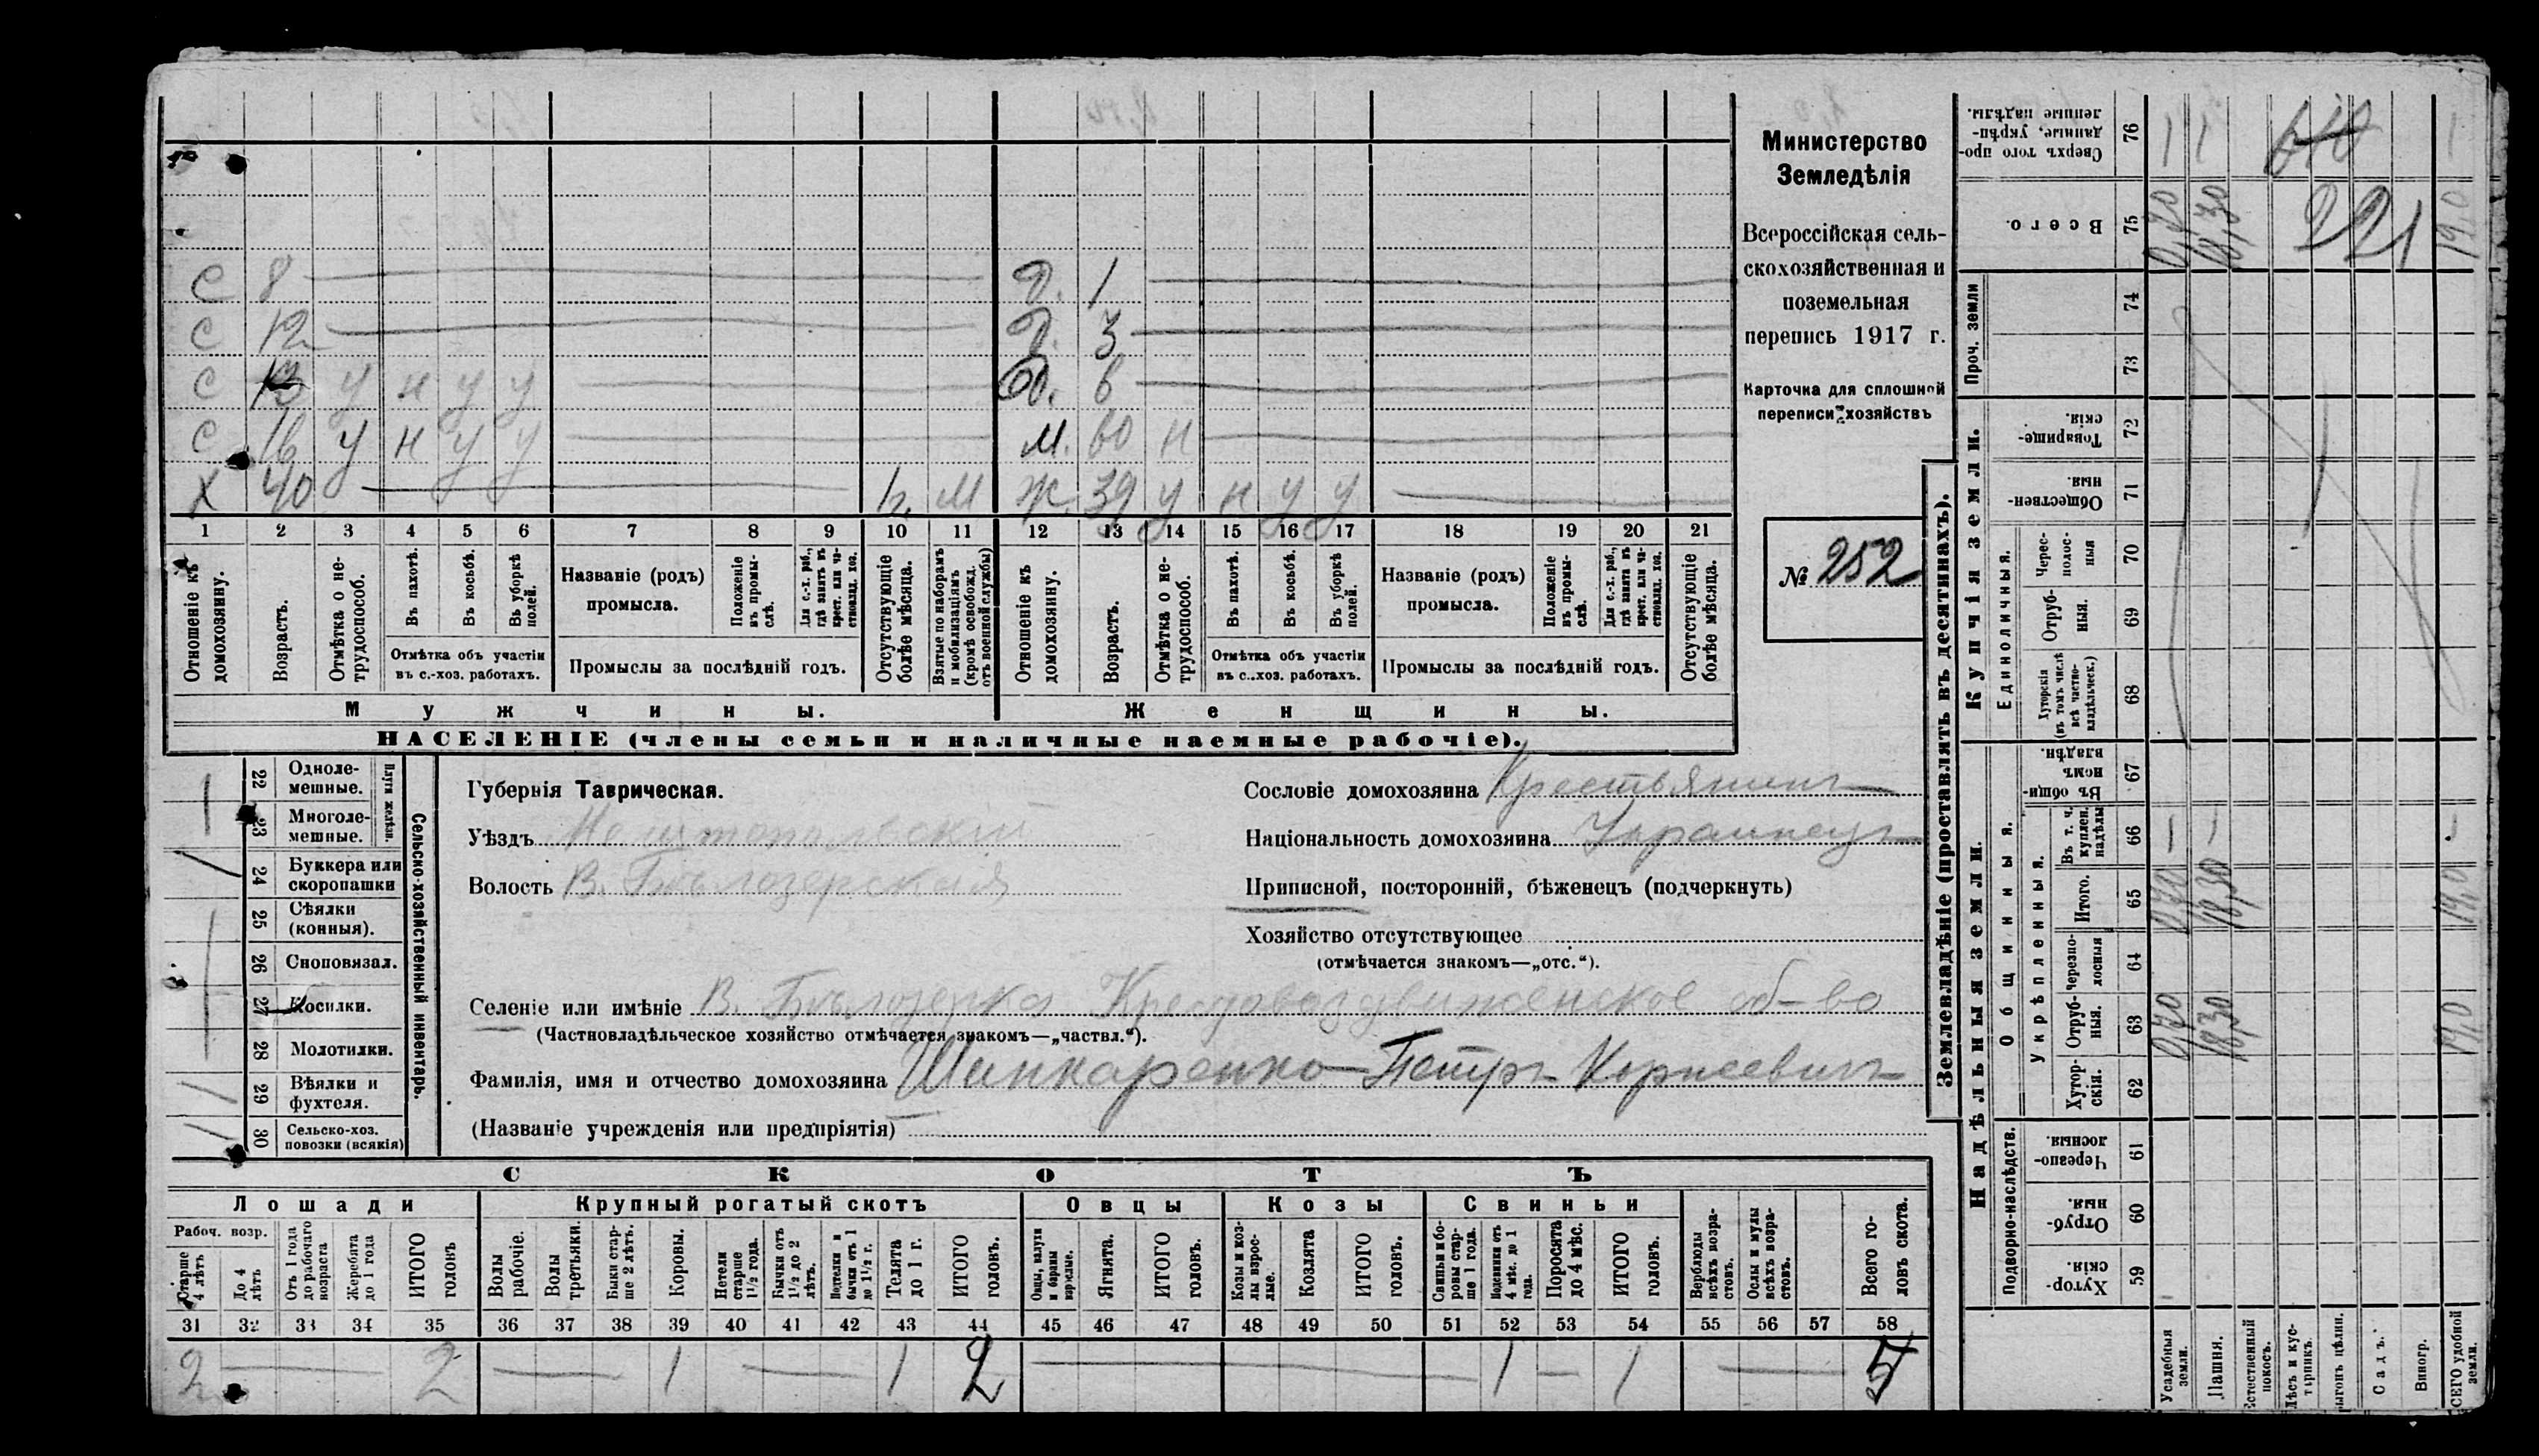 Министерство
Земледѣлія
Всероссійская сель-
скохозяйственная и
поземельная
перепись 1917 г.
Карточка для сплошной
переписи хозяйствъ
№ 252
С 8
С 12
С 13 у н у у
С 16 у н у у
Х 40 у
М
Д. 1
Д. 3
Д. 6
М. 60 н
Ж. 39 у н у у
1 2 3 4 5 6 7 8 9 10 11 12 13 14 15 16 17 18 19 20 21
Отношеніе къ домохозяину.
Возрастъ.
Отмѣтка о не-трудоспособ.
Въ пахотѣ.
Въ косьбѣ.
Въ уборкѣ полей.
Отмѣтка объ участіи въ с.-хоз. работахъ.
Названіе (родъ) промысла.
Положеніе въ промы-слѣ.
Для с.-х. раб., гдѣ занятъ въ крест. или ча-стновлад. хоз.
Промыслы за послѣдній годъ.
Отсутствующіе болѣе мѣсяца.
Взятые по наборамъ и мобилизаціямъ (кромѣ освобожд. отъ военной службы)
Отношеніе къ домохозяину.
Возрастъ.
Отмѣтка о не-трудоспособ.
Въ пахотѣ.
Въ косьбѣ.
Въ уборкѣ полей.
Отмѣтка объ участіи въ с.-хоз. работахъ.
Названіе (родъ) промысла.
Положеніе въ промы-слѣ.
Для с.-х. раб., гдѣ занята въ крест. или ча-стновлад. хоз.
Промыслы за послѣдній годъ.
Отсутствующіе болѣе мѣсяца.
Мужчины.
Женщины.
НАСЕЛЕНІЕ (члены семьи и наличные наемные рабочіе).
22 Одноле-мешные.
23 Многоле-мешные.
Плуги желѣзн.
24 Буккера или скоропашки
25 Сѣялки (конныя).
26 Сноповязал.
27 Косилки.
28 Молотилки.
29 Вѣялки и фухтеля.
30 Сельско-хоз. повозки (всякія)
Сельско-хозяйственный инвентарь.
Губернія Таврическая.
Уѣздъ Мелитопольскій
Волость В. Бѣлозерская
Сословіе домохозяина Крестьянинъ
Національность домохозяина Украинецъ
Приписной, посторонній, бѣженецъ (подчеркнуть)
Хозяйство отсутствующее
(отмѣчается знакомъ—„отс.“).
Селеніе или имѣніе В. Бѣлозерка Крестовоздвиженское об-во
(Частновладѣльческое хозяйство отмѣчается знакомъ—„частвл.“).
Фамилія, имя и отчество домохозяина Шинкаренко Петръ Корнеевичъ
(Названіе учрежденія или предпріятія)
СКОТЪ
Лошади
Крупный рогатый скотъ
Овцы
Козы
Свиньи
Рабоч. возр.
Старше 4 лѣтъ
До 4 лѣтъ
Отъ 1 года до рабочаго возраста
Жеребята до 1 года
ИТОГО головъ
Волы рабочіе.
Волы третьяки.
Быки стар-ше 2 лѣтъ.
Коровы.
Нетели старше 1½ года.
Бычки отъ 1½ до 2 лѣтъ.
Нетелки и бычки отъ 1 до 1½ г.
Телята до 1 г.
ИТОГО головъ.
Овцы, валухи и бараны взрослые.
Ягнята.
ИТОГО головъ.
Козы и коз-лы взрос-лые.
Козлята
ИТОГО головъ.
Свиньи и бо-ровы стар-ше 1 года.
Подсвинки отъ 4 мѣс. до 1 года.
Поросята до 4 мѣс.
ИТОГО головъ.
Верблюды всѣхъ возра-стовъ.
Ослы и мулы всѣхъ возра-стовъ.
Всего го-ловъ скота.
31 32 33 34 35 36 37 38 39 40 41 42 43 44 45 46 47 48 49 50 51 52 53 54 55 56 57 58
2 2 1 1 2 1 1 5
Землевладѣніе (проставлять въ десятинахъ).
Надѣльныя земли.
Купчія земли.
Проч. земли
Подворно-наслѣдств.
Общинныя.
Укрѣпленныя.
Единоличныя.
Хутор-скія. 59
Отруб-ныя. 60
Черезпо-лосныя 61
Хутор-скія. 62
Отруб-ныя. 63
Черезпо-лосныя 64
Итого. 65
Въ т. ч. куплен. надѣлы 66
Въ общи-номъ владѣн. 67
Хуторскія (въ томъ числѣ всѣ частно-владѣльческ.) 68
Отруб-ныя. 69
Черес-полос-ныя 70
Обществен-ныя. 71
Товарище-скія. 72
73
74
Всего. 75
Сверхъ того про-данные, укрѣп-ленные надѣлы. 76
Усадебныя земли.
Пашня.
Естественный покосъ.
Лѣсъ и кус-тарникъ.
Выгонъ цѣлин.
Садъ.
Виногр.
ВСЕГО удобной земли.
0,70 18,30 19,0
0,70 18,30 19,0
0,70 18,30 19,0
221